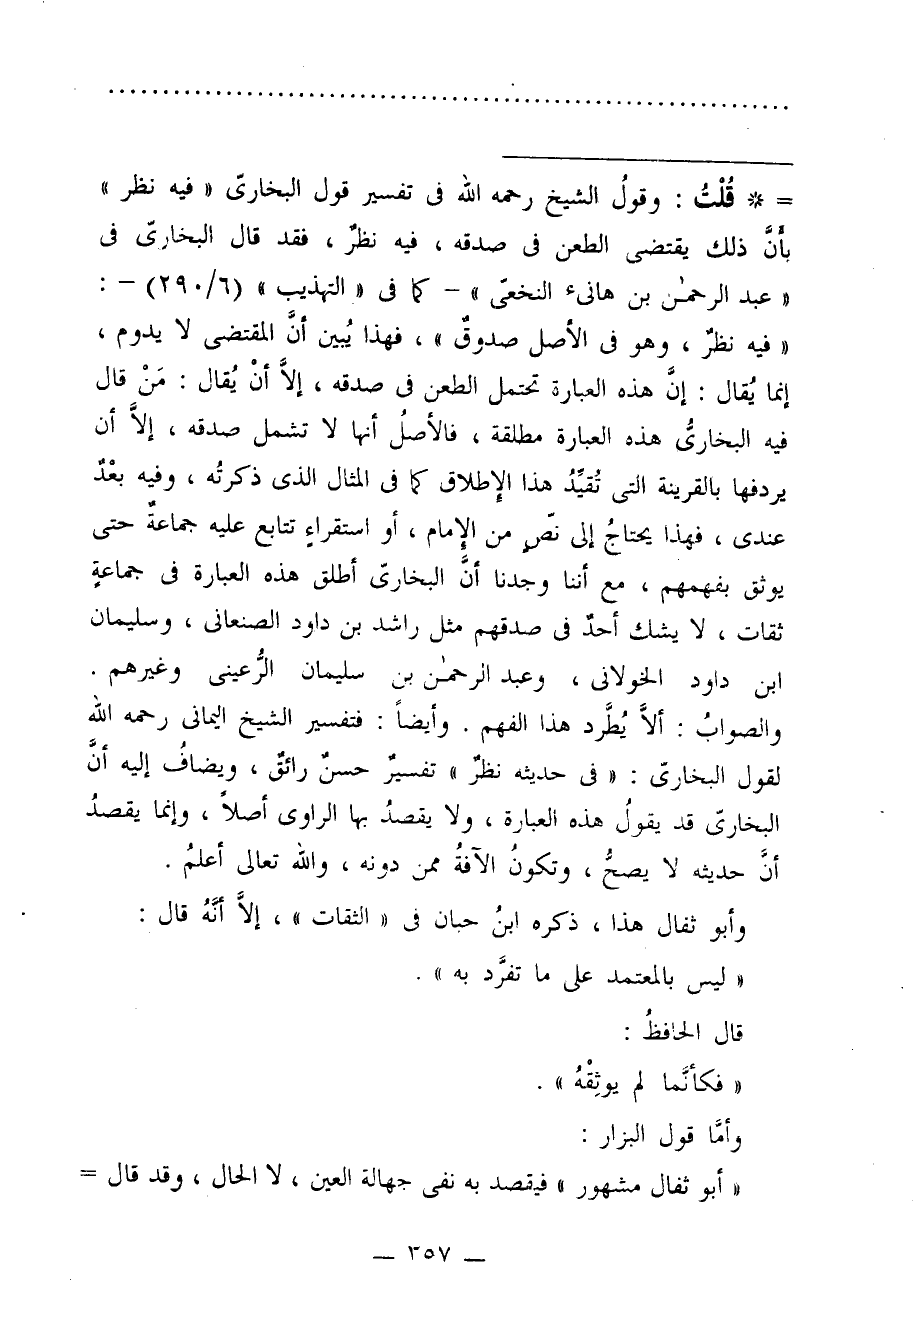 = * قُلْتُ : وقولُ الشيخ رحمه الله فى تفسير قول البخارىّ « فيه نظر »
بأَنَّ ذلك يقتضى الطعن فى صدقه ، فيه نظرٌ ، فقد قال البخارىّ فى
« عبد الرحمٰن بن هانىء النخعىّ » – كما فى « التهذيب » (٢٩٠/٦) – :
« فيه نظرٌ ، وهو فى الأصل صدوقٌ » ، فهذا يُبين أنَّ المقتضى لا يدوم ،
إنما يُقال : إنَّ هذه العبارة تحتمل الطعن فى صدقه ، إلاَّ أنْ يُقال : مَنْ قال
فيه البخارىُّ هذه العبارة مطلقة ، فالأصلُ أنها لا تشمل صدقه ، إلاَّ أن
يردفها بالقرينة التى تُقيِّدُ هذا الإِطلاق كما فى المثال الذى ذكرتُه ، وفيه بعْدٌ
عندى ، فهذا يحتاجُ إلى نصٍّ من الإِمام ، أو استقراءٍ تتابع عليه جماعةٌ حتى
يوثق بفهمهم ، مع أننا وجدنا أنَّ البخارىّ أطلق هذه العبارة فى جماعةٍ
ثقات ، لا يشك أحدٌ فى صدقهم مثل راشد بن داود الصنعانى ، وسليمان
ابن داود الخولانى ، وعبد الرحمٰن بن سليمان الرُّعينى وغيرهم .
والصوابُ : ألاَّ يُطَّرد هذا الفهم . وأيضاً : فتفسير الشيخ اليمانى رحمه الله
لقول البخارىّ : « فى حديثه نظرٌ » تفسيرٌ حسنٌ رائقٌ ، ويضافُ إليه أنَّ
البخارىّ قد يقولُ هذه العبارة ، ولا يقصدُ بها الراوى أصلاً ، وإنما يقصدُ
أنَّ حديثه لا يصحُّ ، وتكونُ الآفةُ ممن دونه ، والله تعالى أعلمُ .
وأبو ثفال هذا ، ذكره ابنُ حبان فى « الثقات » ، إلاَّ أنَّهُ قال :
« ليس بالمعتمد على ما تفرَّد به » .
قال الحافظُ :
« فكأنَّما لم يوثِقْهُ » .
وأمَّا قول البزار :
« أبو ثفال مشهور » فيقصد به نفى جهالة العين ، لا الحال ، وقد قال =
— ٣٥٧ —